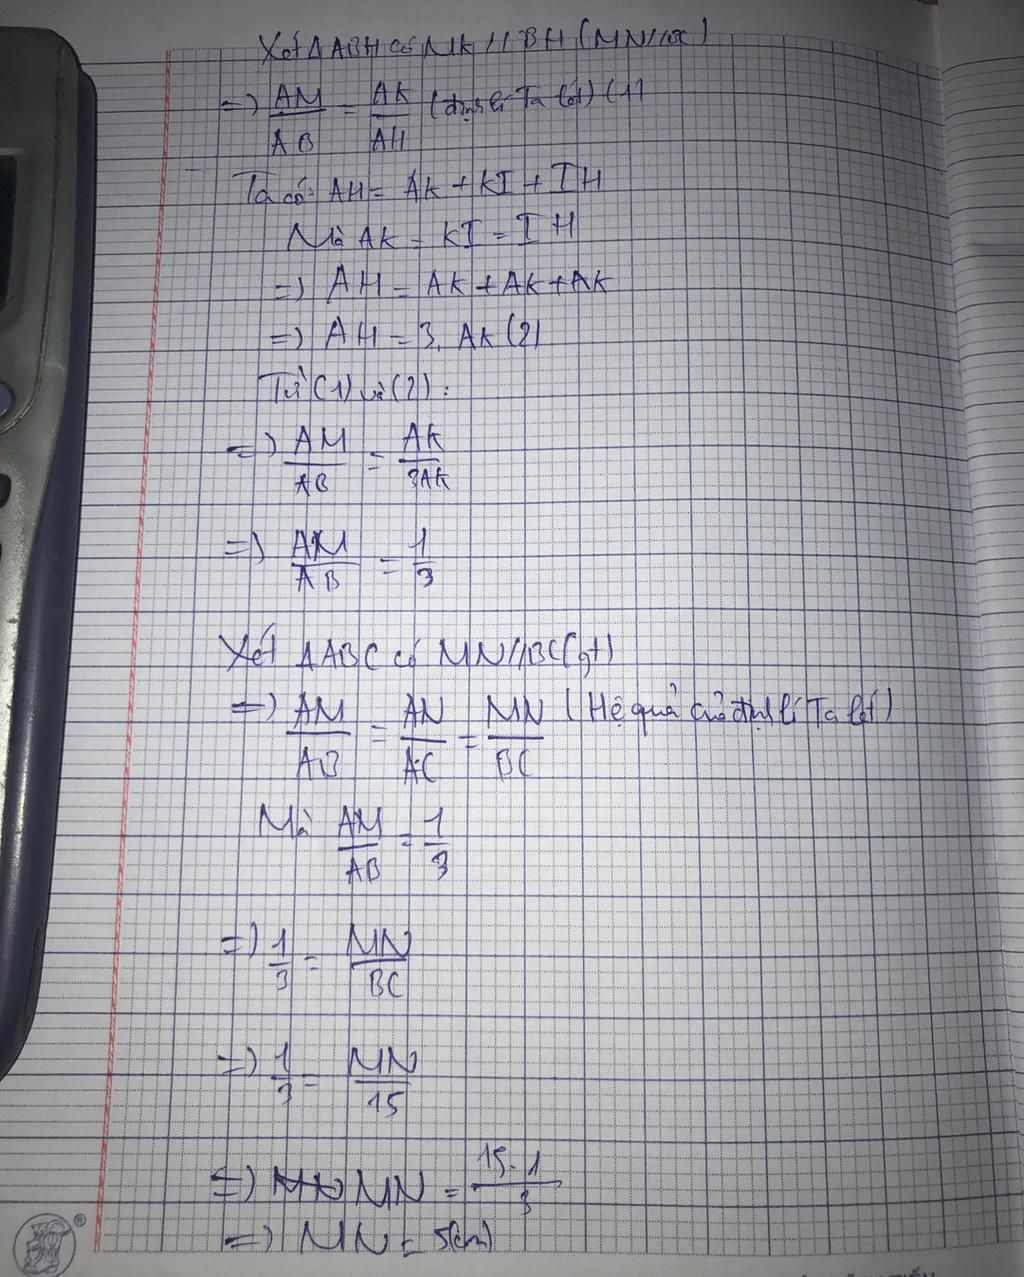 Xét ΔABH có MK // BH (MN // BC)
=> AM/AB = AK/AH (định lí Ta lét) (1)
Ta có: AH = AK + KI + IH
Mà AK = KI = IH
=> AH = AK + AK + AK
=> AH = 3. AK (2)
Từ (1) và (2) :
=> AM/AB = AK/3AK
=> AM/AB = 1/3
Xét ΔABC có MN // BC (gt)
=> AM/AB = AN/AC = MN/BC (Hệ quả của định lí Ta lét)
Mà AM/AB = 1/3
=> 1/3 = MN/BC
=> 1/3 = MN/15
=> MN = 15.1/3
=> MN = 5(cm)